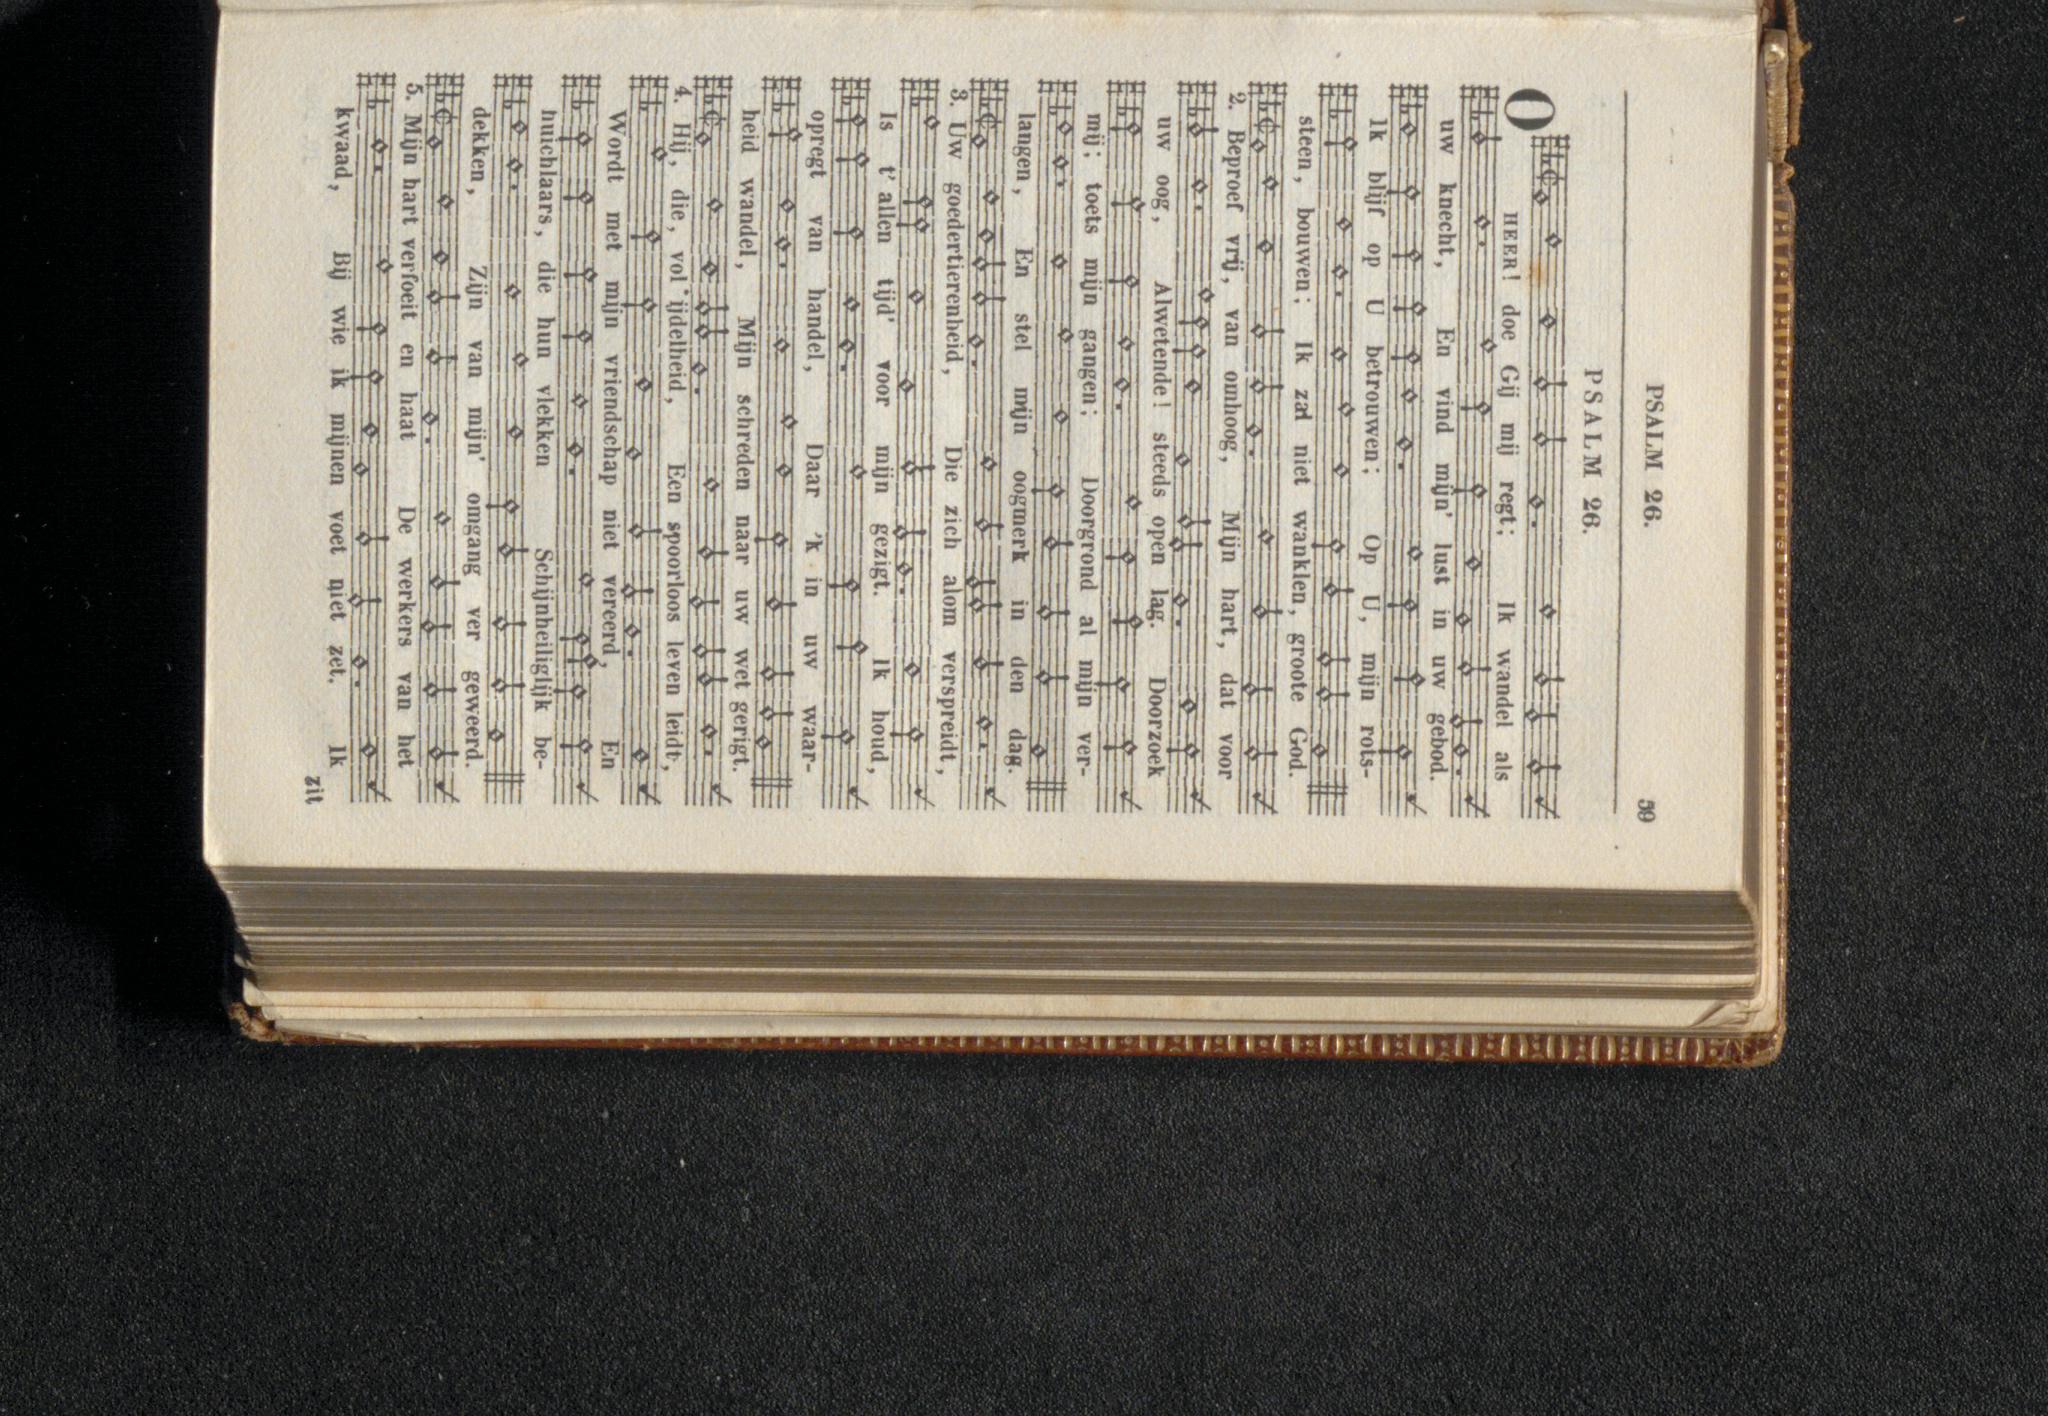 PSALM 26. 59
PSALM 26.
O HEER! doe Gij mij regt; Ik wandel als
uw knecht, En vind mijn' lust in uw gebod.
Ik blijf op U betrouwen; Op U, mijn rots-
steen, bouwen; Ik zal niet wanklen, groote God.
2. Beproef vrij, van omhoog, Mijn hart, dat voor
uw oog, Alwetende! steeds open lag. Doorzoek
mij; toets mijn gangen; Doorgrond al mijn ver-
langen, En stel mijn oogmerk in den dag.
3. Uw goedertierenheid, Die zich alom verspreidt,
Is t' allen tijd' voor mijn gezigt. Ik houd,
opregt van handel, Daar 'k in uw waar-
heid wandel, Mijn schreden naar uw wet gerigt.
4. Hij, die, vol ijdelheid, Een spoorloos leven leidt,
Wordt met mijn vriendschap niet vereerd, En
huichlaars, die hun vlekken Schijnheiliglijk be-
dekken, Zijn van mijn' omgang ver geweerd.
5. Mijn hart verfoeit en haat De werkers van het
kwaad, Bij wie ik mijnen voet niet zet. Ik
zit